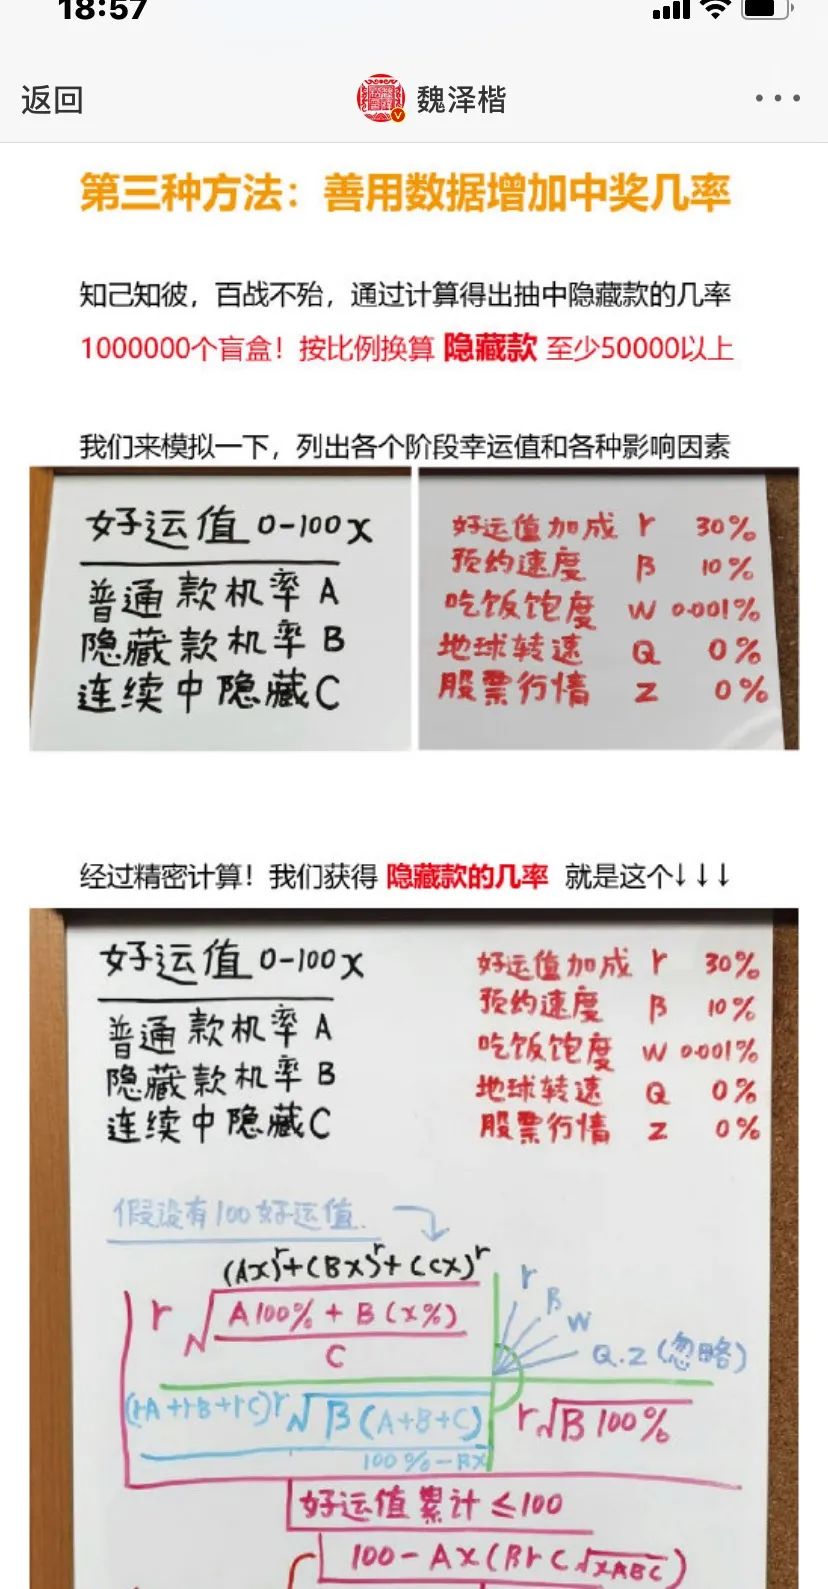 18:57
返回
魏泽楷
第三种方法：善用数据增加中奖几率
知己知彼，百战不殆，通过计算得出抽中隐藏款的几率
1000000个盲盒！按比例换算 隐藏款 至少50000以上
我们来模拟一下，列出各个阶段幸运值和各种影响因素
好运值 0-100 x
普通款机率 A
隐藏款机率 B
连续中隐藏 C
好运值加成 r 30%
预约速度 β 10%
吃饭饱度 W 0.001%
地球转速 Q 0%
股票行情 Z 0%
经过精密计算！我们获得 隐藏款的几率 就是这个↓↓↓
好运值 0-100 x
普通款机率 A
隐藏款机率 B
连续中隐藏 C
好运值加成 r 30%
预约速度 β 10%
吃饭饱度 W 0.001%
地球转速 Q 0%
股票行情 Z 0%
假设有100好运值
(Ax)^r+(Bx)^r+(Cx)^r
r√ A100% + B(x%)
C
r
β
W
Q.Z(忽略)
(rA+rB+rC)r√ β(A+B+C)
100%-Bx
r√B100%
好运值累计≤100
100-Ax(βrC√xABC)